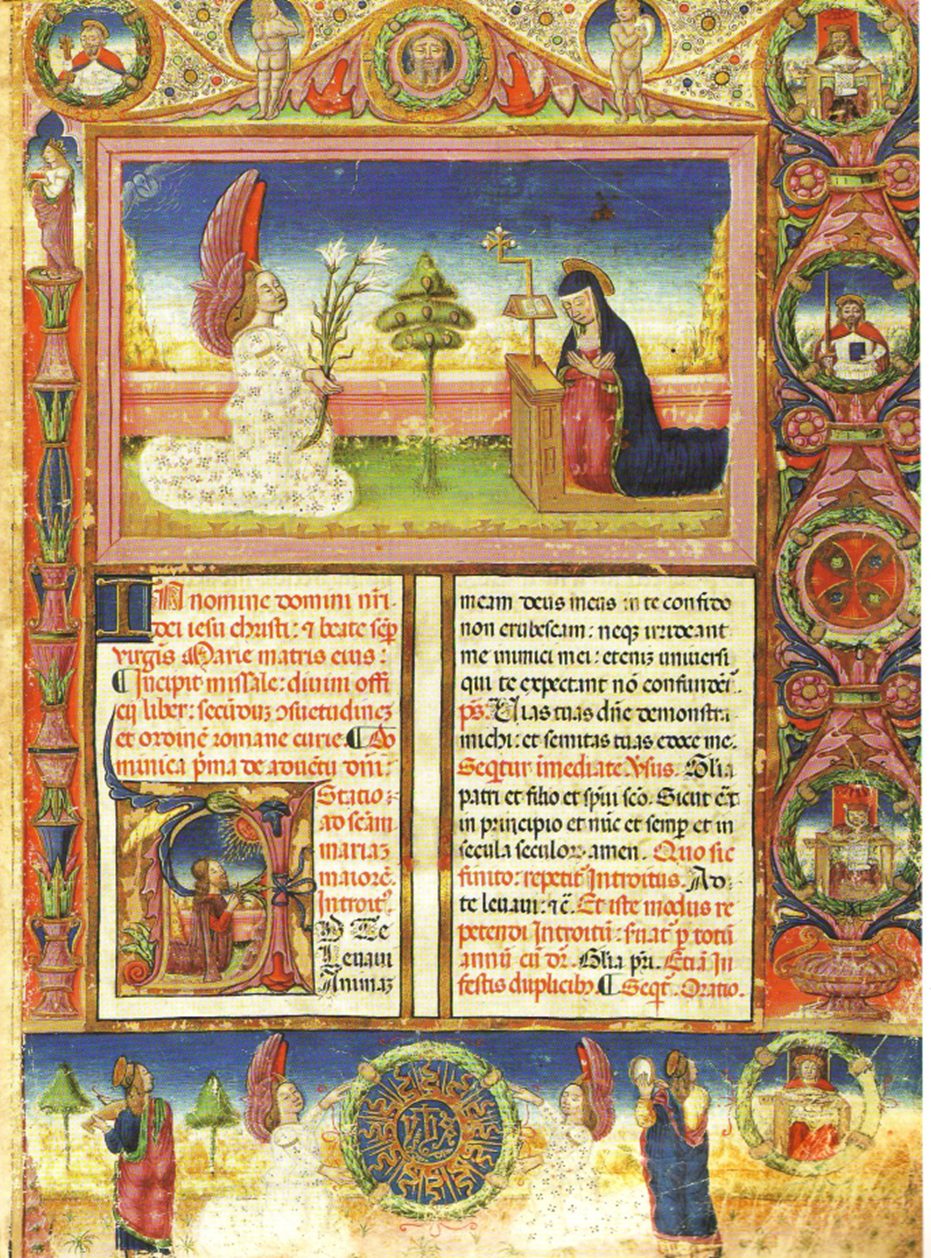 IN nomine domini nr̄i.
dei iesu christi: ⁊ beate sēp
virgīs Marie matris eius:
¶ Incipit missale: diuini offi
cij liber: secūduz ↄsuetudinez
et ordinē romane curie. ¶ Do
minica p̄ma de aduētu dn̄i.
Statio:
ad sc̄am
mariaz
maiorē.
Introit9.
AD Te
Leuaui
Animaz
meam deus meus in te confido
non erubescam: neqz irrideant
me inimici mei: eteniz uniuersi
qui te expectant nō confundēt̄.
ps. Uias tuas dn̄e demonstra
michi: et semitas tuas edoce me.
Seqt̄ur imediate Vsus. Gl̄ia
patri et filio et sp̄ui sc̄o. Sicut er̄t
in principio et nūc et semp̄ et in
secula seculoꝝ. amen. Quo sic
finito: repetit̄ Introitus. Ad
te leuaui: ⁊c̄. Et iste modus re
petendi Introitū: seruat̄ p̲ totū
annū cū dr̄. Gl̄ia pr̄i. Etiā In
festis duplicibꝫ. ¶ Seqt̄. Oratio.